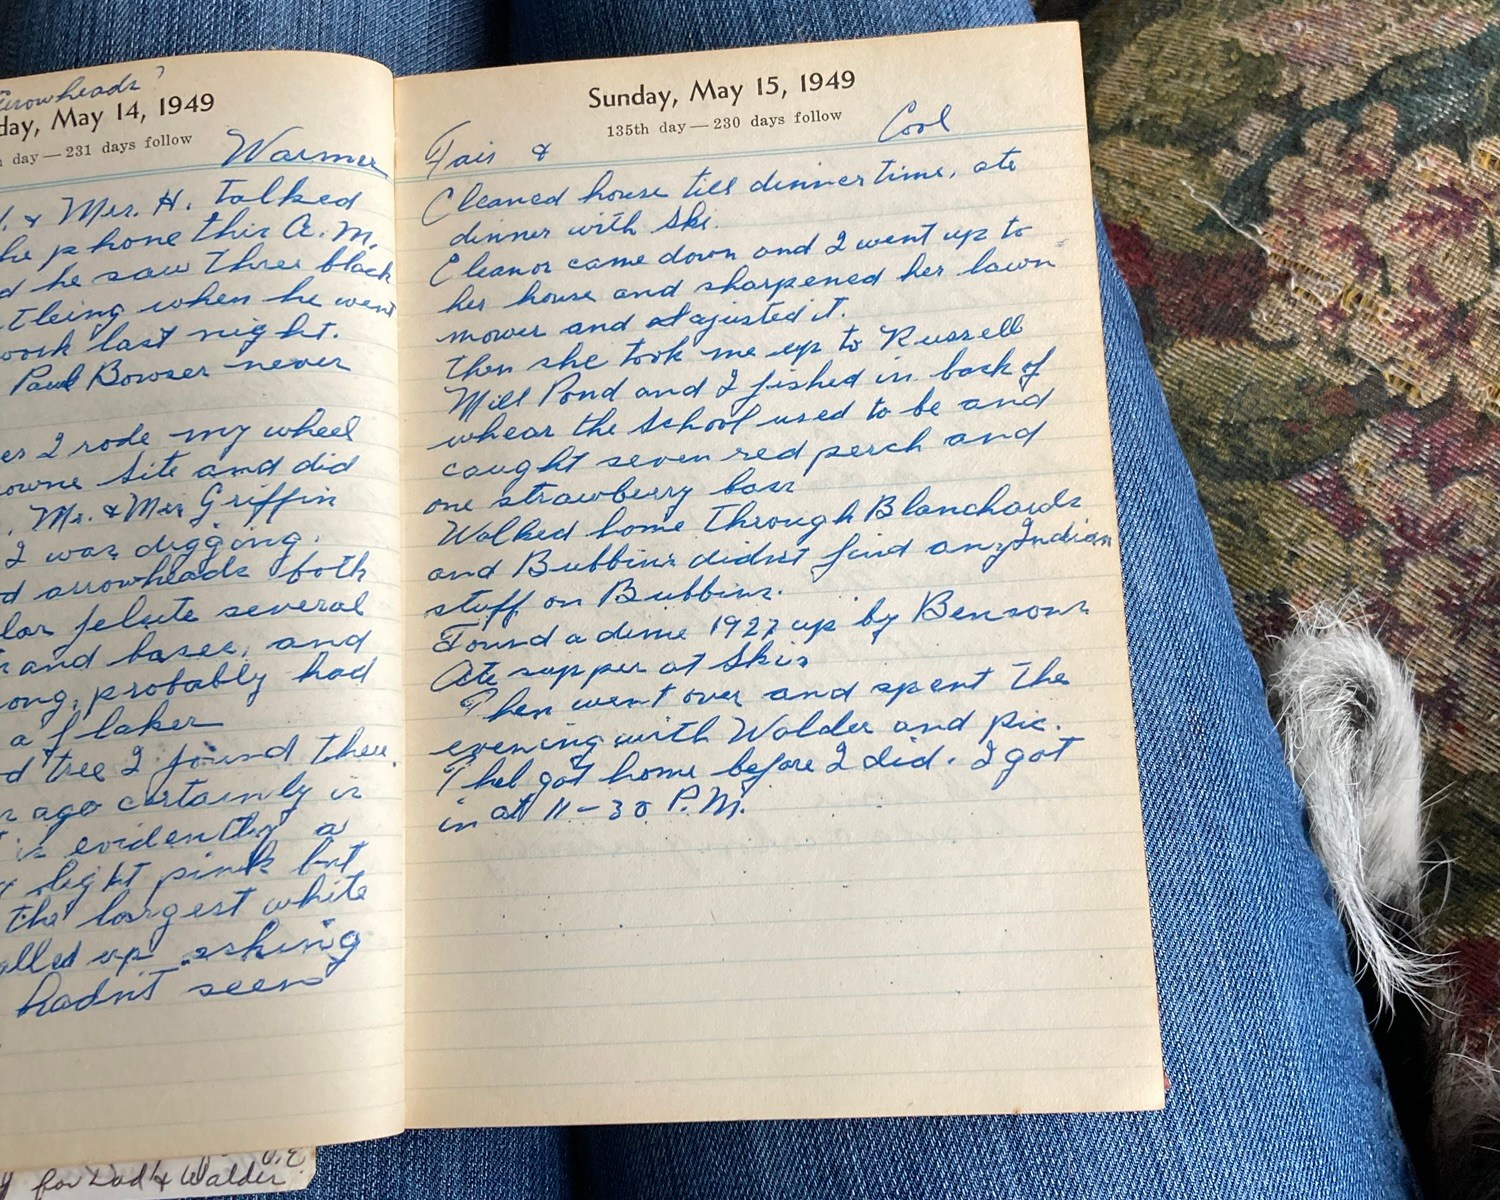 arrowheads
day, May 14, 1949
day — 231 days follow
Warmer
. & Mrs. H. talked
he phone this A. M.
d he saw three black
tleing when he went
work last night.
Paul Bowser never
es I rode my wheel
owne Site and did
. Mr. & Mrs Griffin
I was digging.
d arrowheads both
lar felsite several
and bases, and
ong, probably had
a flaker
d tree I found there.
ago certainly is
is evidently a
slight pink but
the largest white
alled up asking
hadn't seen
for Dad & Walder
Sunday, May 15, 1949
135th day — 230 days follow
Fair & Cool
Cleaned house till dinner time, ate
dinner with Ski.
Eleanor came down and I went up to
her house and sharpened her lawn
mower and atajusted it.
Then she took me up to Russell
Mill Pond and I fished in back of
whear the School used to be and
caught seven red perch and
one strawberry bass
Walked home through Blanchards
and Bubbins didn't find any Indian
stuff on Bubbins.
Found a dime 1927 up by Bensons
Ate supper at Skis
Then went over and spent the
evening with Walder and pic.
Thel got home before I did. I got
in at 11-30 P.M.